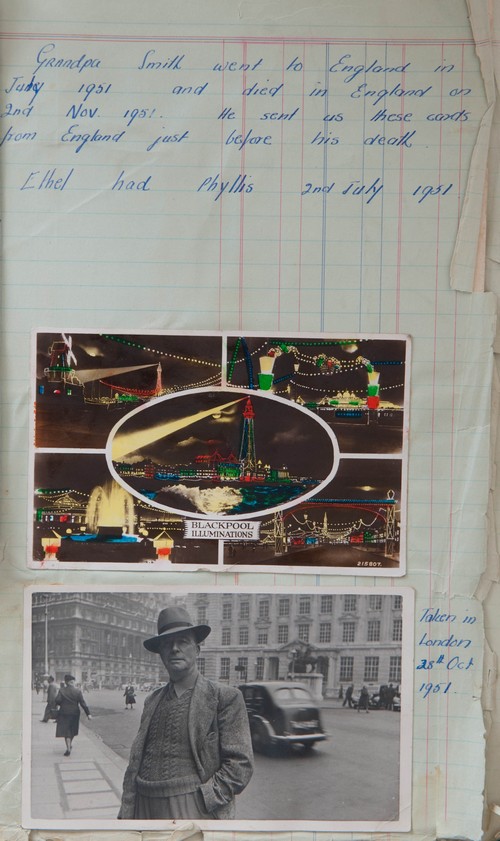 Grandpa Smith went to England in
July 1951 and died in England on
2nd Nov. 1951. He sent us these cards
from England just before his death.
Ethel had Phyllis 2nd July 1951
BLACKPOOL
ILLUMINATIONS
21580Y.
Taken in
London
28th Oct
1951.